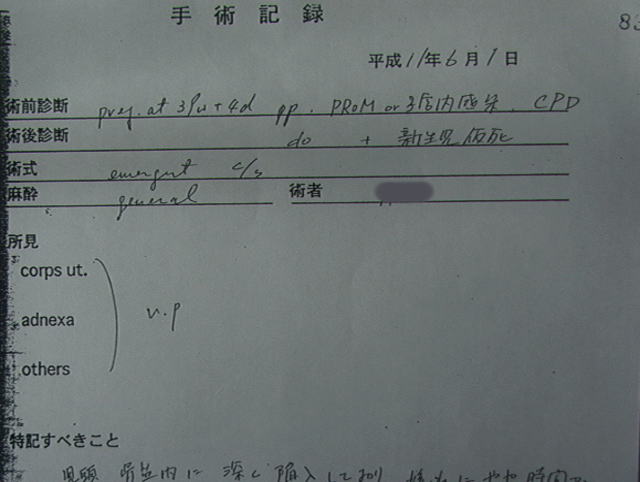 手術記録
83
平成11年6月1日
術前診断 preg. at 39w+4d pp. PROM or 子宮内感染. CPD
術後診断 do + 新生児仮死
術式 emergent c/s
麻酔 general 術者
所見
corps ut.
adnexa n.p
others
特記すべきこと
児頭 骨盤内に 深く陥入しており